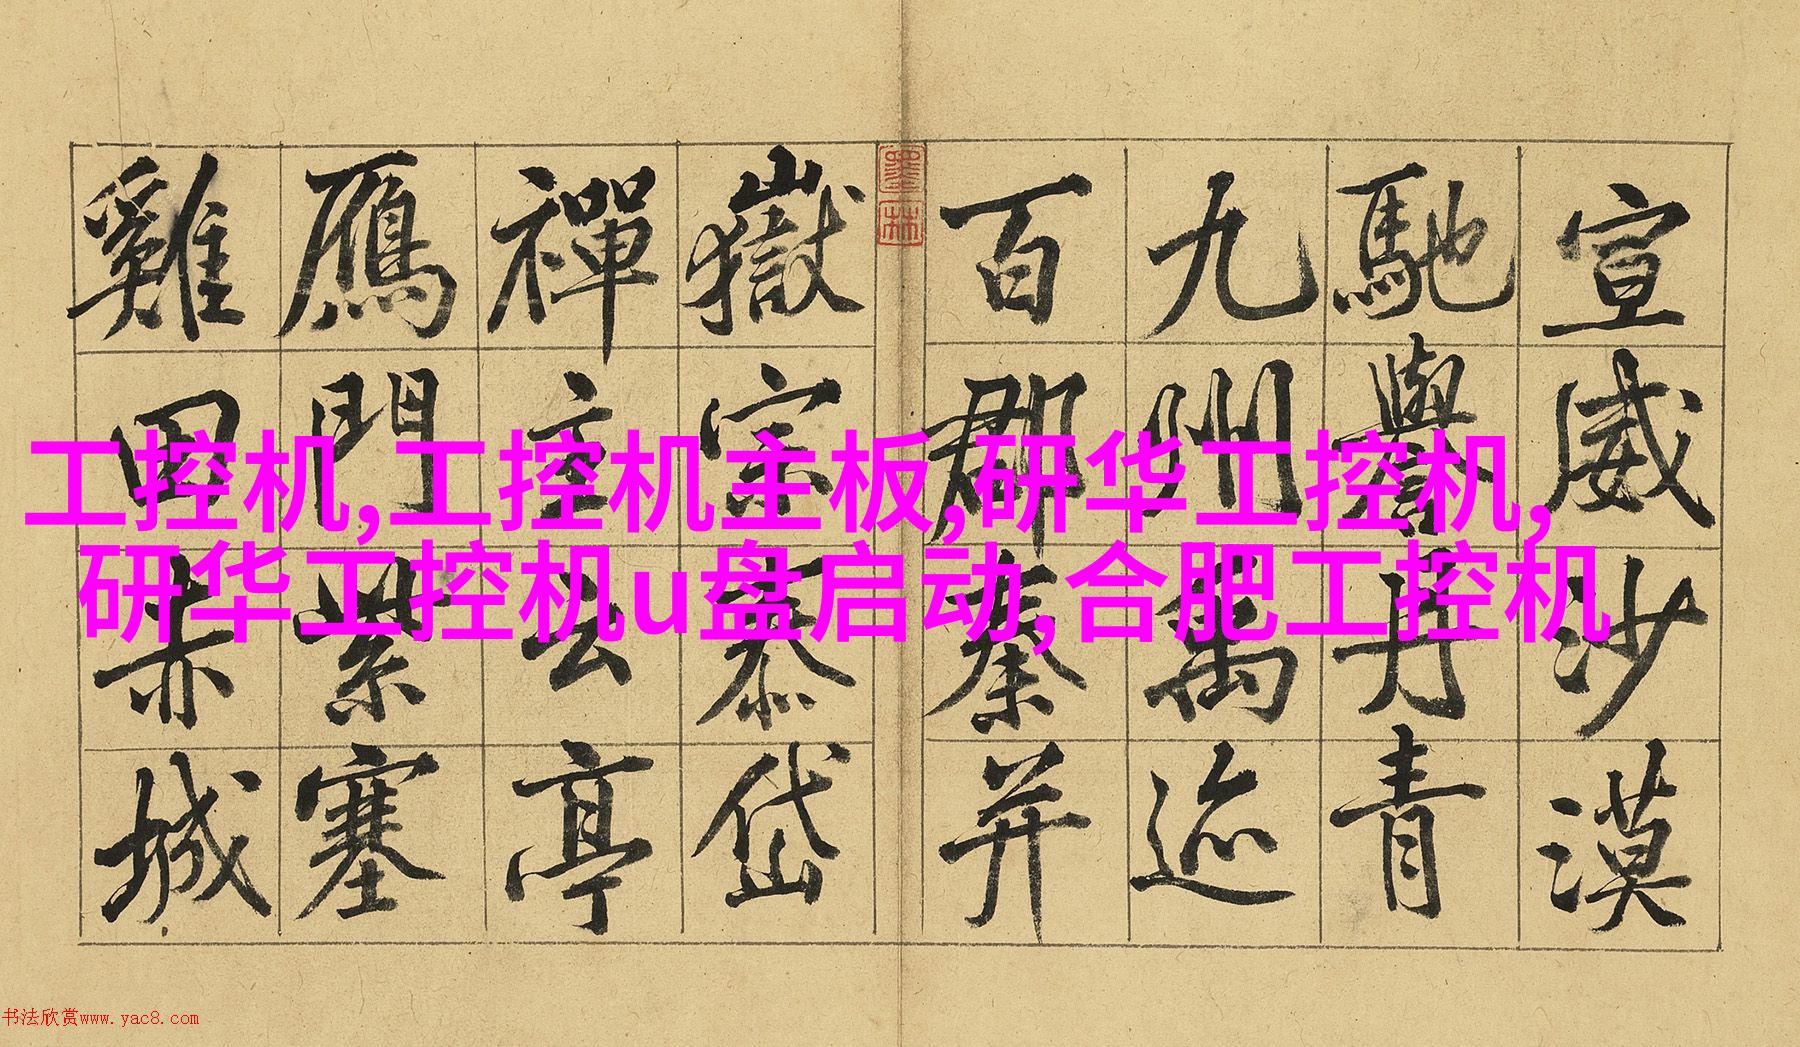 宣威沙漠
馳譽丹青
九州禹迹
百郡秦并
墨林
嶽宗泰岱
禪主云亭
鴈門紫塞
雞田赤城
工控机,工控机主板,研华工控机,
研华工控机u盘启动,合肥工控机
书法欣赏www.yac8.com